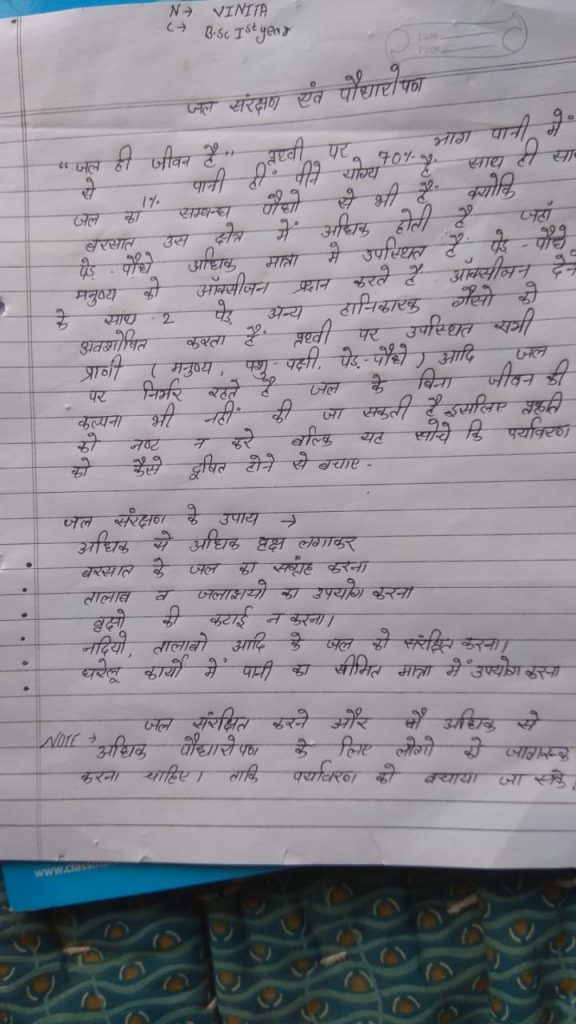 N → VINITA
C → B.Sc Ist year
Date
Page
जल संरक्षण एंव पौधारोपण
"जल ही जीवन है" पृथ्वी पर 70% भाग पानी में
से 1% पानी ही पीने योग्य है साथ ही साथ
जल का सम्बन्ध पौधो से भी है क्योकि
बरसात उस क्षेत्र में अधिक होती है जहां
पेड़-पौधे अधिक मात्रा मे उपस्थित है पेड़-पौधे
मनुष्य को ऑक्सीजन प्रदान करते है ऑक्सीजन देने
के साथ-2 पेड़ अन्य हानिकारक गैसो को
अवशोषित करता है पृथ्वी पर उपस्थित सभी
प्राणी (मनुष्य, पशु-पक्षी, पेड़-पौधे) आदि जल
पर निर्भर रहते है जल के बिना जीवन की
कल्पना भी नहीं की जा सकती है इसलिए प्रकृति
को नष्ट न करे बल्कि यह सोचे कि पर्यावरण
को कैसे दूषित होने से बचाए-
जल संरक्षण के उपाय →
• अधिक से अधिक वृक्ष लगाकर
• बरसात के जल का संग्रह करना
• तालाब व जलाशयो का उपयोग करना
• वृक्षो की कटाई न करना।
• नदियो, तालाबो आदि के जल को संरक्षित करना।
• घरेलू कार्यो में पानी का सीमित मात्रा में उपयोग करना
NOTE → जल संरक्षित करने और अधिक से
अधिक पौधारोपण के लिए लोगो को जागरूक
करना चाहिए। ताकि पर्यावरण को बचाया जा सके।